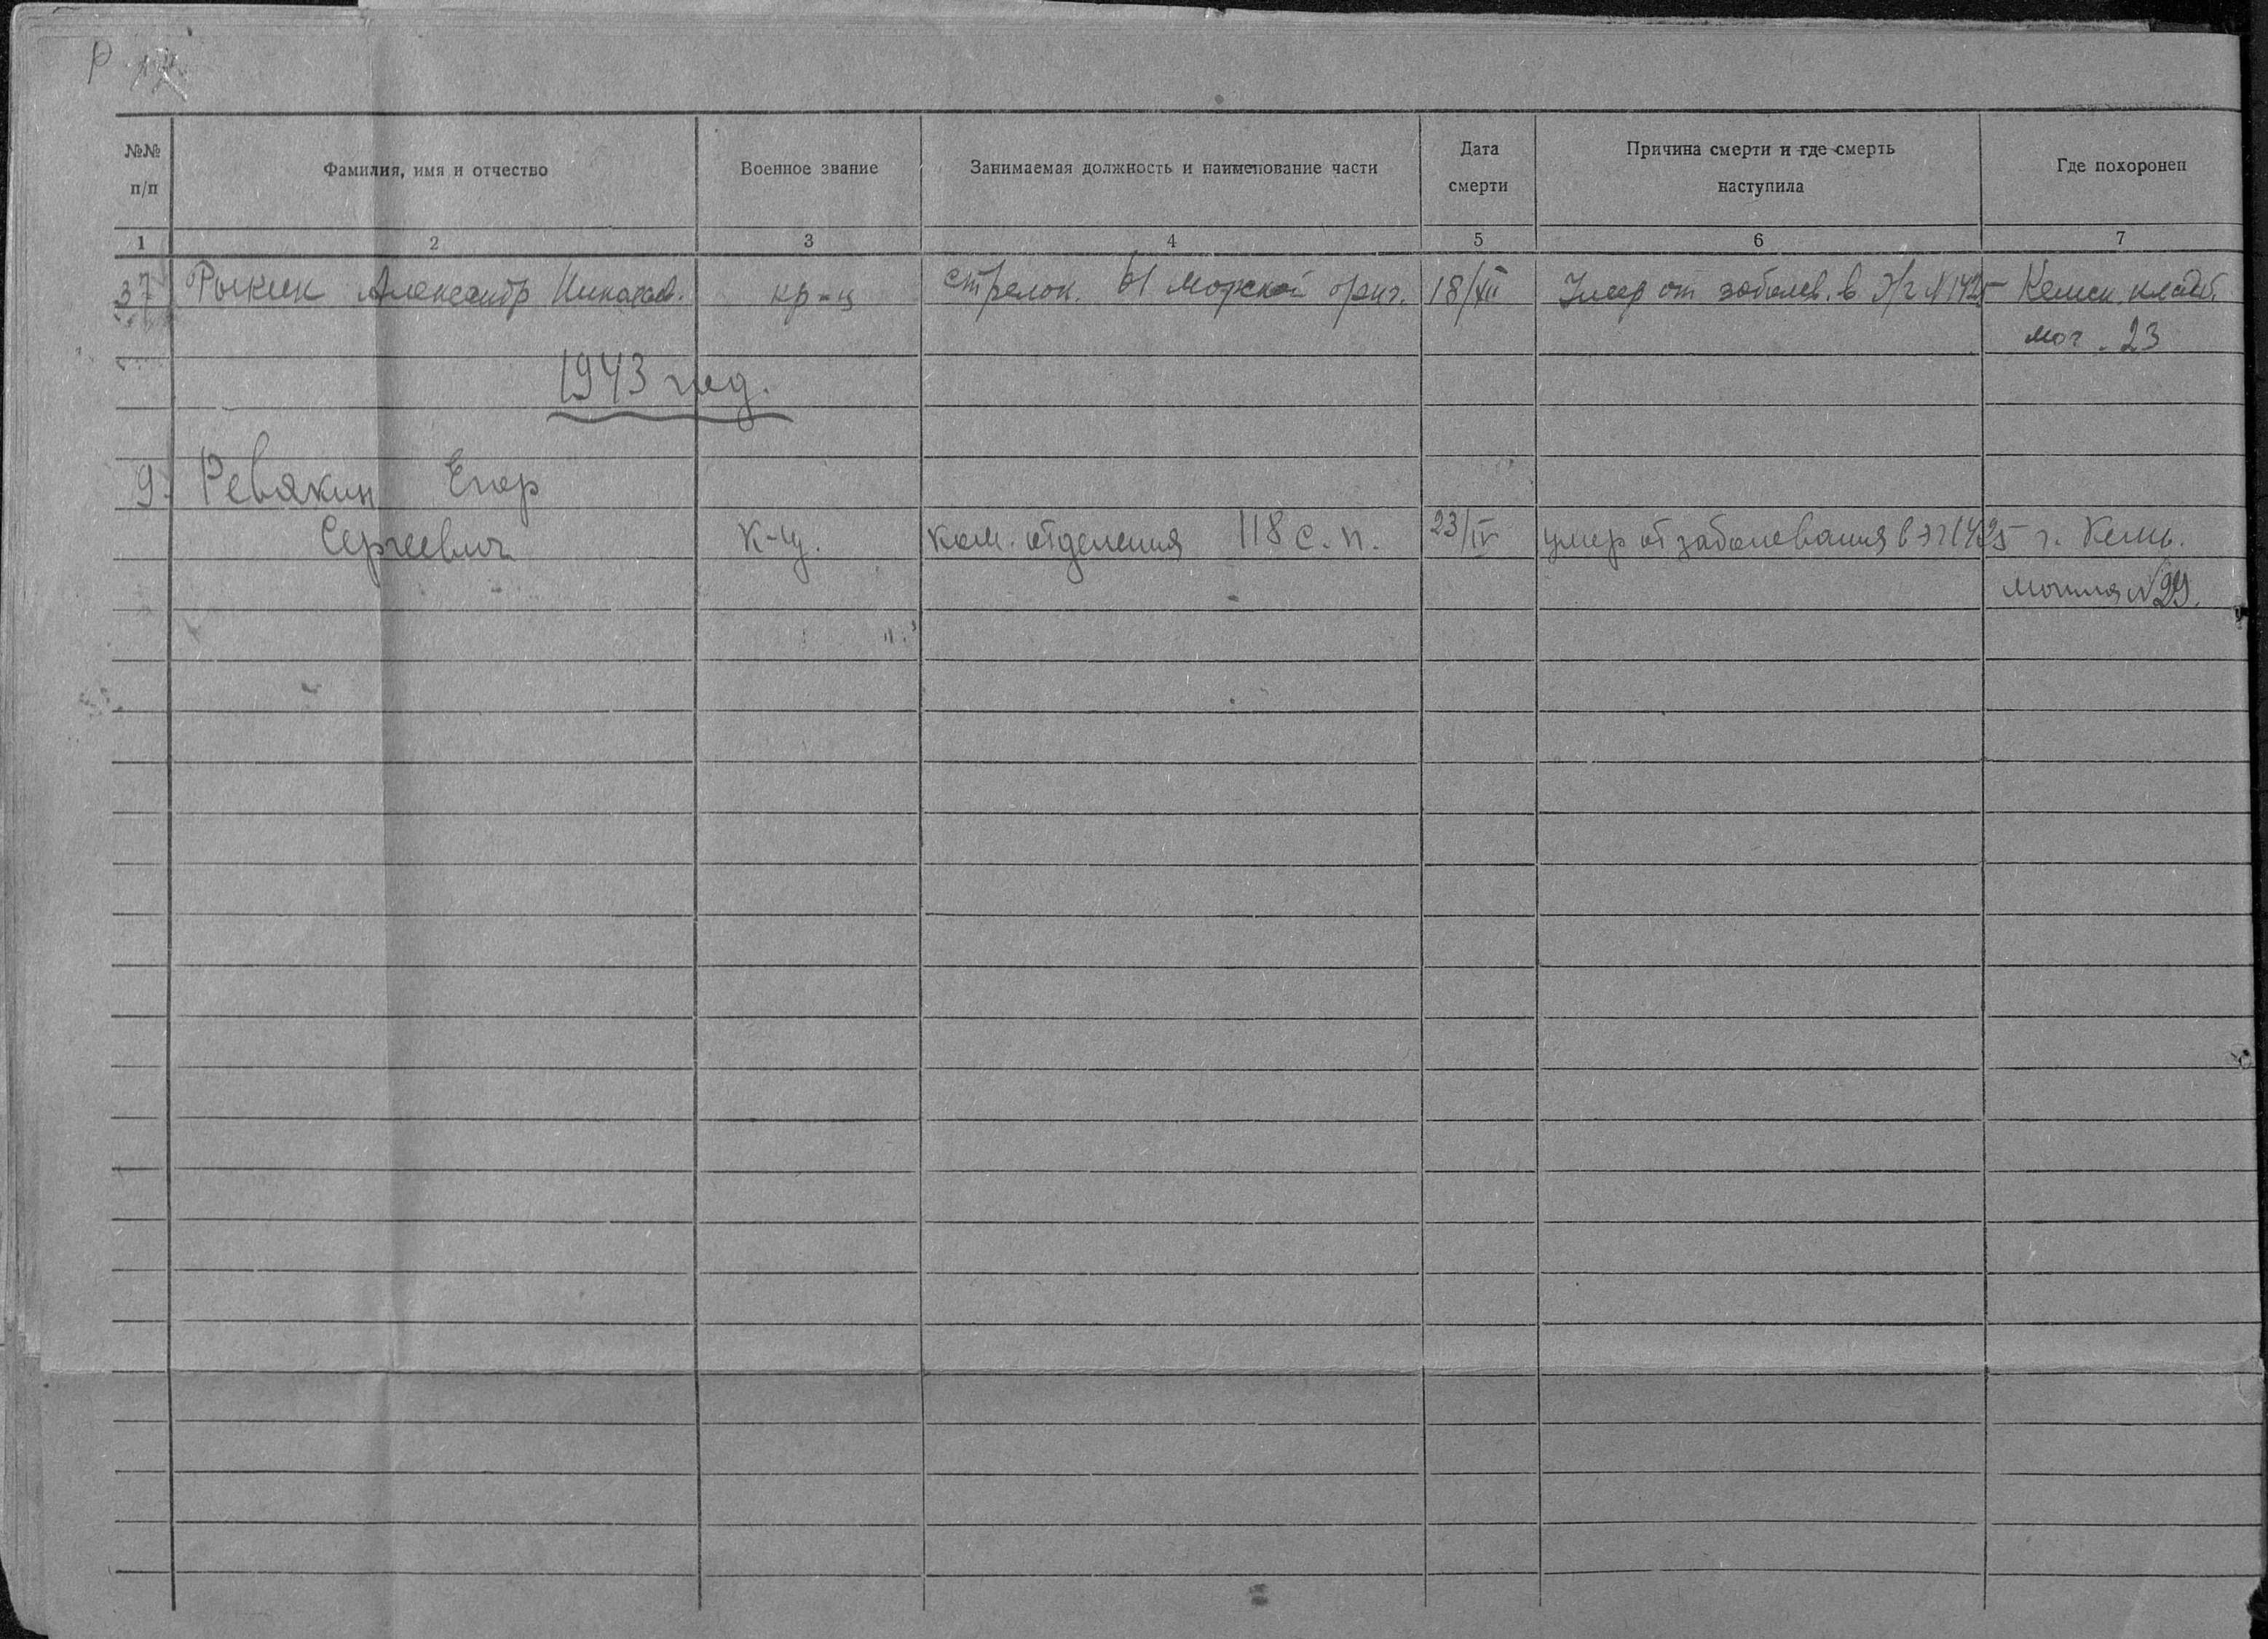 Р
№№ п/п
Фамилия, имя и отчество
Военное звание
Занимаемая должность и наименование части
Дата смерти
Причина смерти и где смерть
наступила
Где похоронен
1 2 3 4 5 6 7
37 Рыкин Александр Никалаев. кр-ц стрелок. 61 Морской бриг. 18/XII Умер от заболев. в Э/г №1425 Кемск. кладб.
мог. 23
1943 год.
9. Ревякин Егор
Сергеевич к-ц. ком. отделения 118 с. п. 23/IV умер от заболевания в ЭГ1425 г. Кемь.
могила №29.